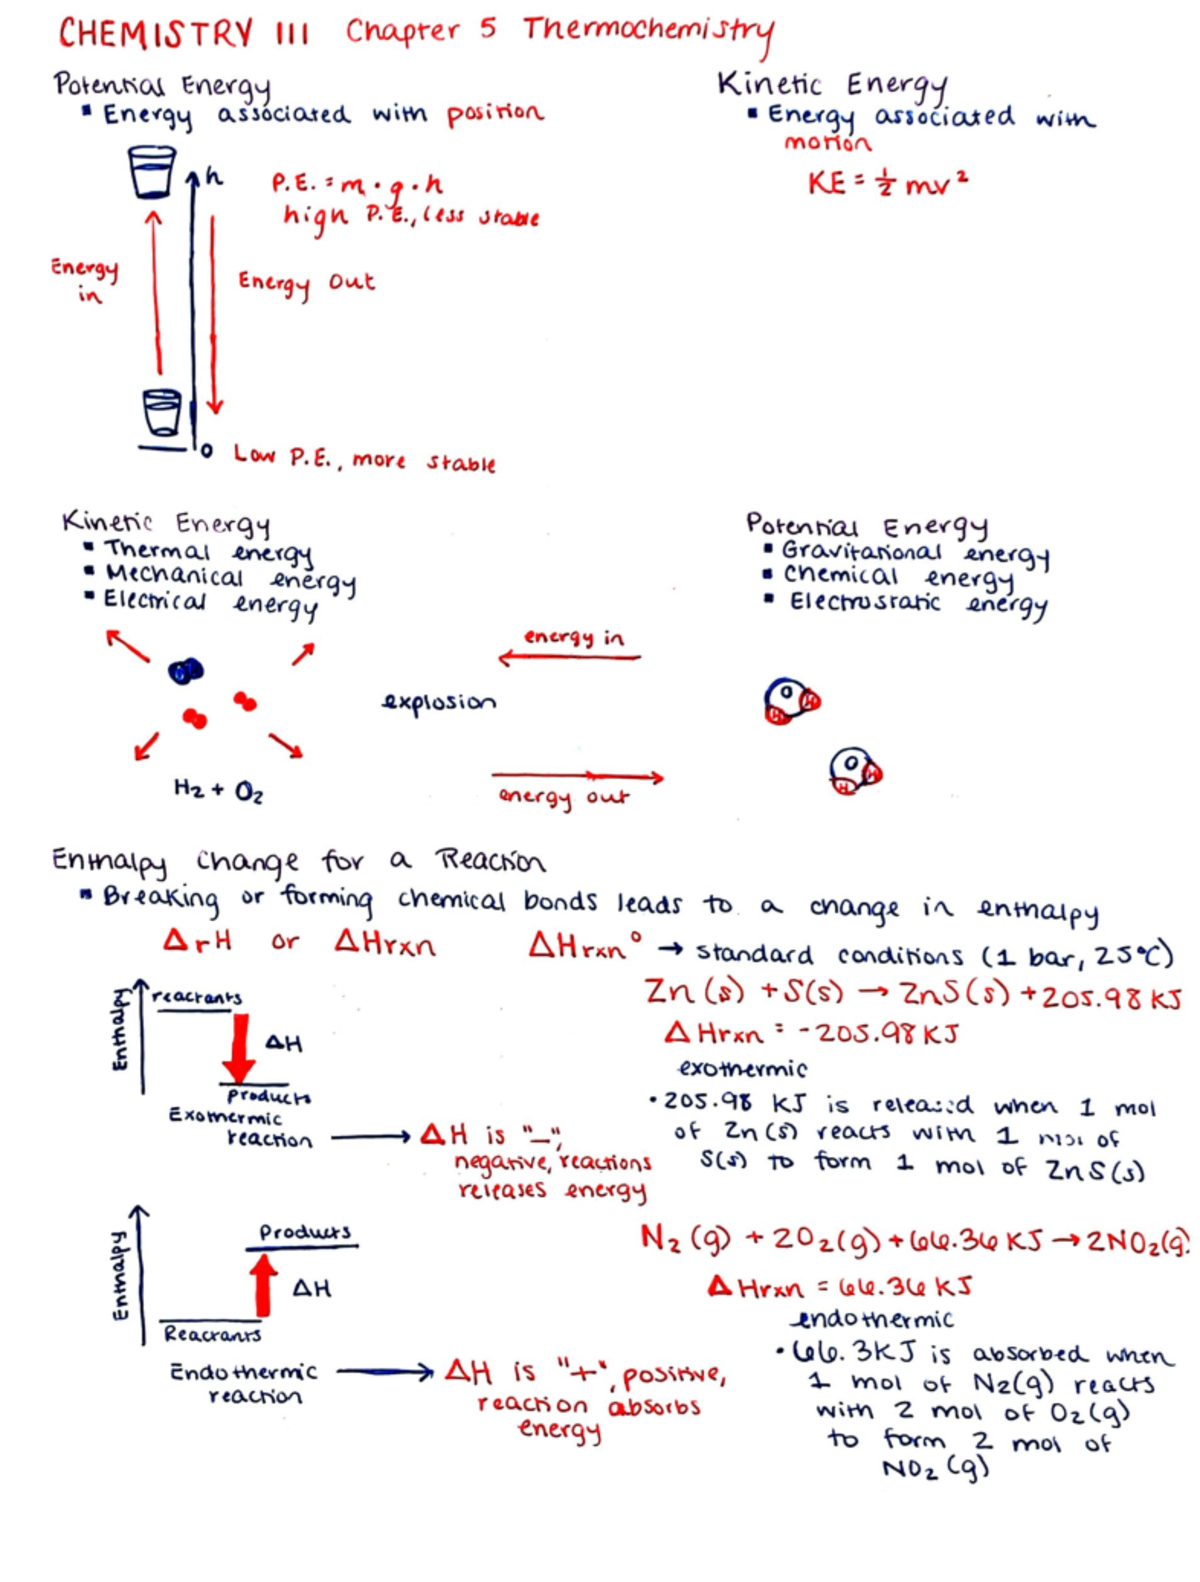 CHEMISTRY III Chapter 5 Thermochemistry
Potential Energy
▪ Energy associated with position
h
P.E. = m · g · h
high P.E., less stable
Energy in
Energy Out
0 Low P.E., more stable
Kinetic Energy
▪ Energy associated with
motion
KE = ½ mv²
Kinetic Energy
▪ Thermal energy
▪ Mechanical energy
▪ Electrical energy
Potential Energy
▪ Gravitational energy
▪ Chemical energy
▪ Electrostatic energy
energy in
explosion
energy out
H₂ + O₂
O H H
O H H
Enthalpy Change for a Reaction
▪ Breaking or forming chemical bonds leads to a change in enthalpy
ΔrH or ΔHrxn ΔHrxn° → standard conditions (1 bar, 25°C)
Enthalpy
reactants
ΔH
Products
Exothermic
reaction → ΔH is "–",
negative, reactions
releases energy
Zn(s) + S(s) → ZnS(s) + 205.98 KJ
ΔHrxn = -205.98 KJ
exothermic
• 205.98 KJ is released when 1 mol
of Zn(s) reacts with 1 mol of
S(s) to form 1 mol of ZnS(s)
Enthalpy
Products
ΔH
Reactants
Endothermic
reaction → ΔH is "+", positive,
reaction absorbs
energy
N₂(g) + 2O₂(g) + 66.36 KJ → 2NO₂(g)
ΔHrxn = 66.36 KJ
endothermic
• 66.3KJ is absorbed when
1 mol of N₂(g) reacts
with 2 mol of O₂(g)
to form 2 mol of
NO₂(g)